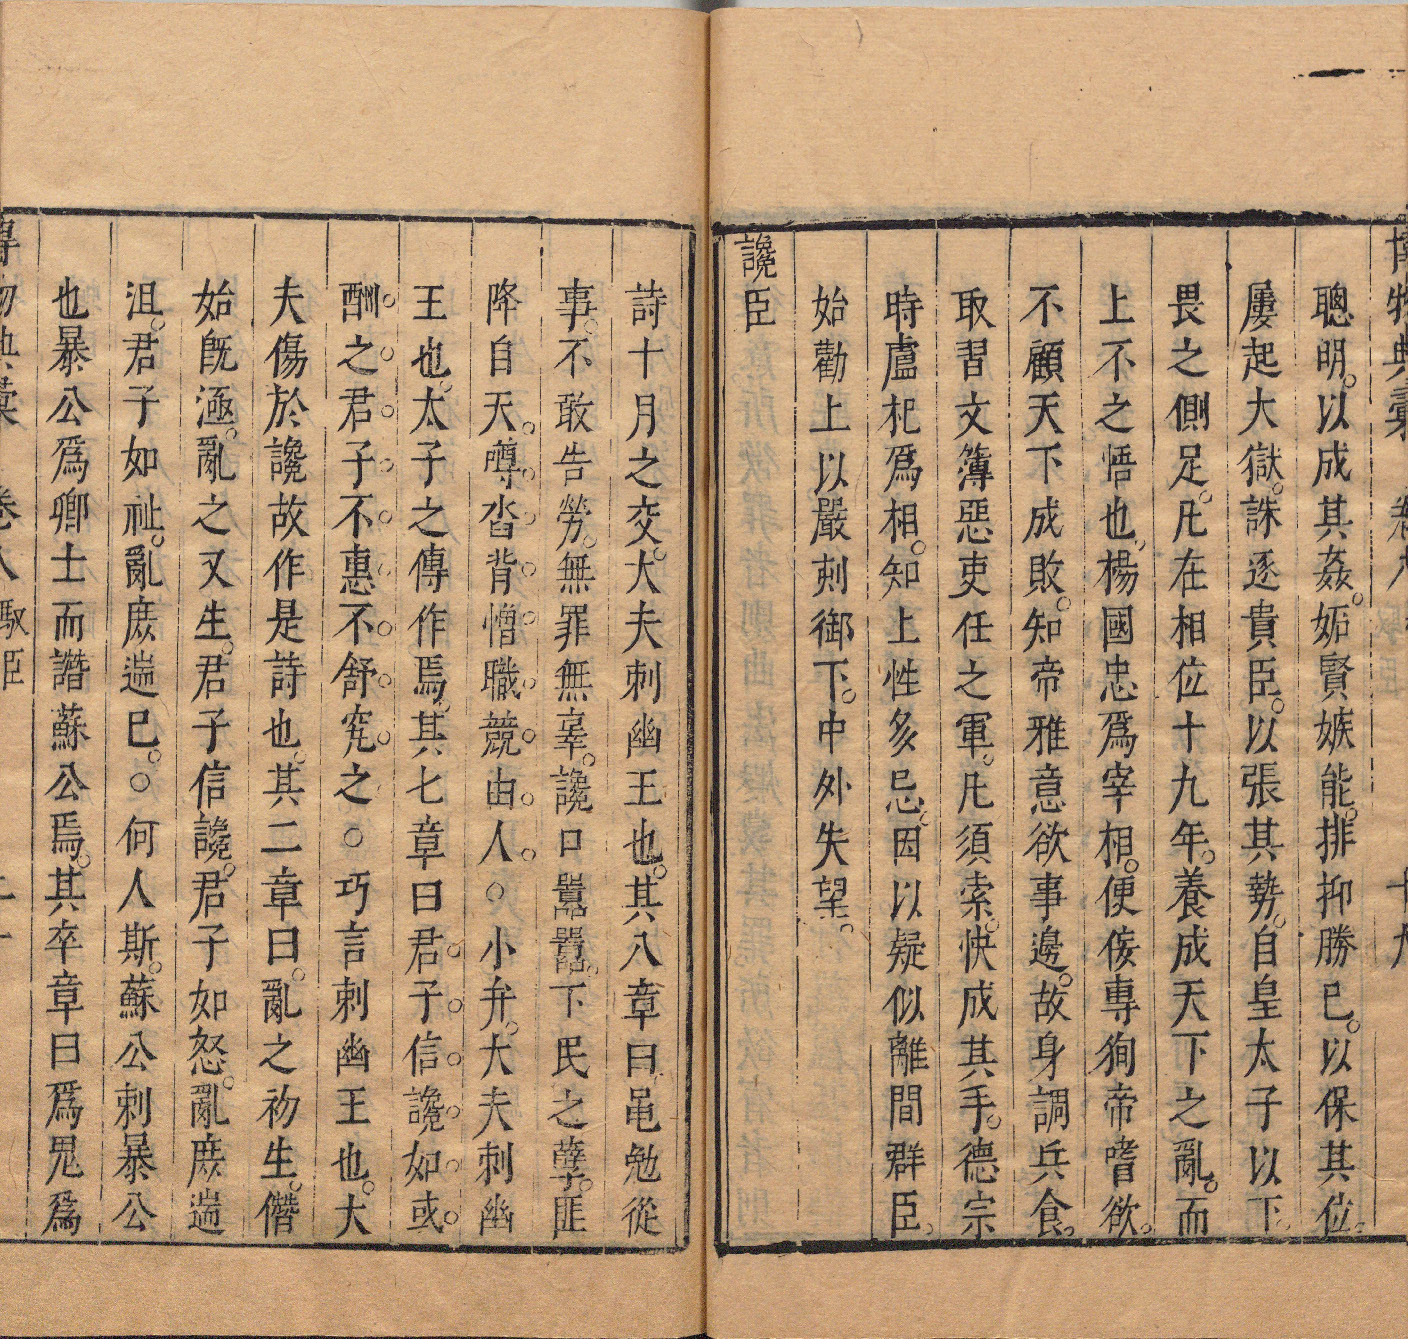 博物典彙 卷八 十九
聰明。以成其姦。妬賢嫉能。排抑勝己。以保其位。
屢起大獄。誅逐貴臣。以張其勢。自皇太子以下。
畏之側足。凡在相位十九年。養成天下之亂。而
上不之悟也。楊國忠爲宰相。便佞專徇帝嗜欲。
不顧天下成敗。知帝雅意欲事邊。故身調兵食。
取習文簿惡吏任之軍。凡須索。快成其手。德宗
時盧杞爲相。知上性多忌。因以疑似離間群臣。
始勸上以嚴刻御下。中外失望。
讒臣
詩十月之交。大夫刺幽王也。其八章曰黽勉從
事。不敢告勞。無罪無辜。讒口囂囂。下民之孽。匪
降自天。噂沓背憎。職競由人。○小弁。大夫刺幽
王也。太子之傳作焉。其七章曰君子信讒。如或
酬之。君子不惠。不舒究之。○巧言刺幽王也。大
夫傷於讒。故作是詩也。其二章曰。亂之初生。僭
始旣涵。亂之又生。君子信讒。君子如怒。亂庶遄
沮。君子如祉。亂庶遄已。○何人斯。蘇公刺暴公
也暴公爲卿士而譖蘇公焉。其卒章曰爲鬼爲
博物典彙 卷八 馭臣 二十